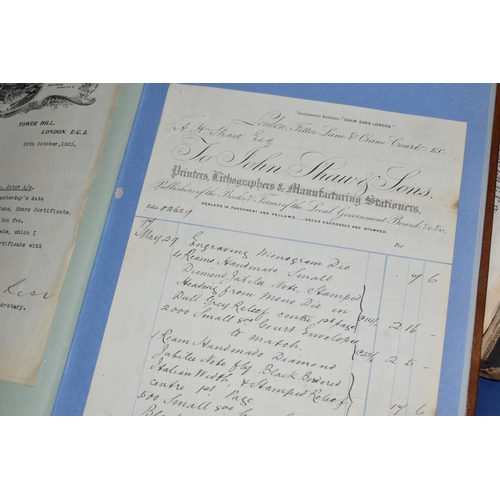 TOWER HILL,
LONDON, E.C.3.
October, 1923.
yesterday's date
Share Certificate
tion fee.
ate, which I
ertificate with
cretary.
TELEGRAPHIC ADDRESS "SHAW SONS LONDON"
London, Fetter Lane & Crane Court, E.C.
A H Shaw Esq
To John Shaw & Sons.
Printers, Lithographers & Manufacturing Stationers,
Publishers of the Books & Forms of the Local Government Board, &c &c.
DEALERS IN PARCHMENT AND VELLUMS. DEEDS ENGROSSED AND STAMPED
Folio
May 27 Engraving Monogram Die . 7 6
4 Reams Handmade Small
Diamond Jubilee Note Stamped
Heading from Mono Die in
Dull Grey Relief centre 1st page 2 16 -
2000 Small 800 Court Envelopes
to match 2 5 -
1 Ream Handmade Diamond
Jubilee Note Black Bordered
Italian Width & Stamped Relief
centre 1st Page 17 6
500 Small 800